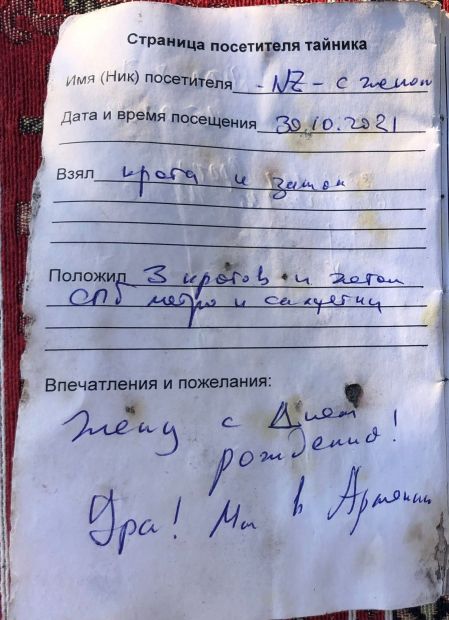 Страница посетителя тайника
Имя (Ник) посетителя -NZ- с женой
Дата и время посещения 30.10.2021
Взял крота и замок
Положил 3 кротов и жетон
СПб метро и салфетки
Впечатления и пожелания:
Жену с Днем
рождения!
Ура! Мы в Армении